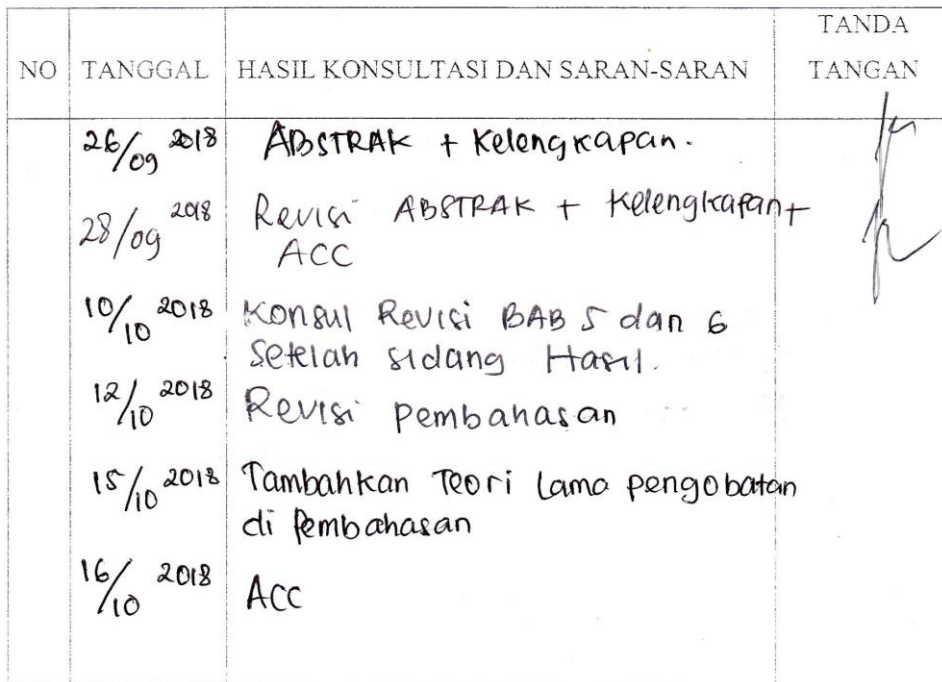 NO TANGGAL HASIL KONSULTASI DAN SARAN-SARAN TANDA TANGAN
26/09 2018 ABSTRAK + Kelengkapan.
28/09 2018 Revisi ABSTRAK + Kelengkapan +
ACC
10/10 2018 Konsul Revisi BAB 5 dan 6
Setelah sidang Hasil.
12/10 2018 Revisi pembahasan
15/10 2018 Tambahkan Teori Lama pengobatan
di Pembahasan
16/10 2018 ACC